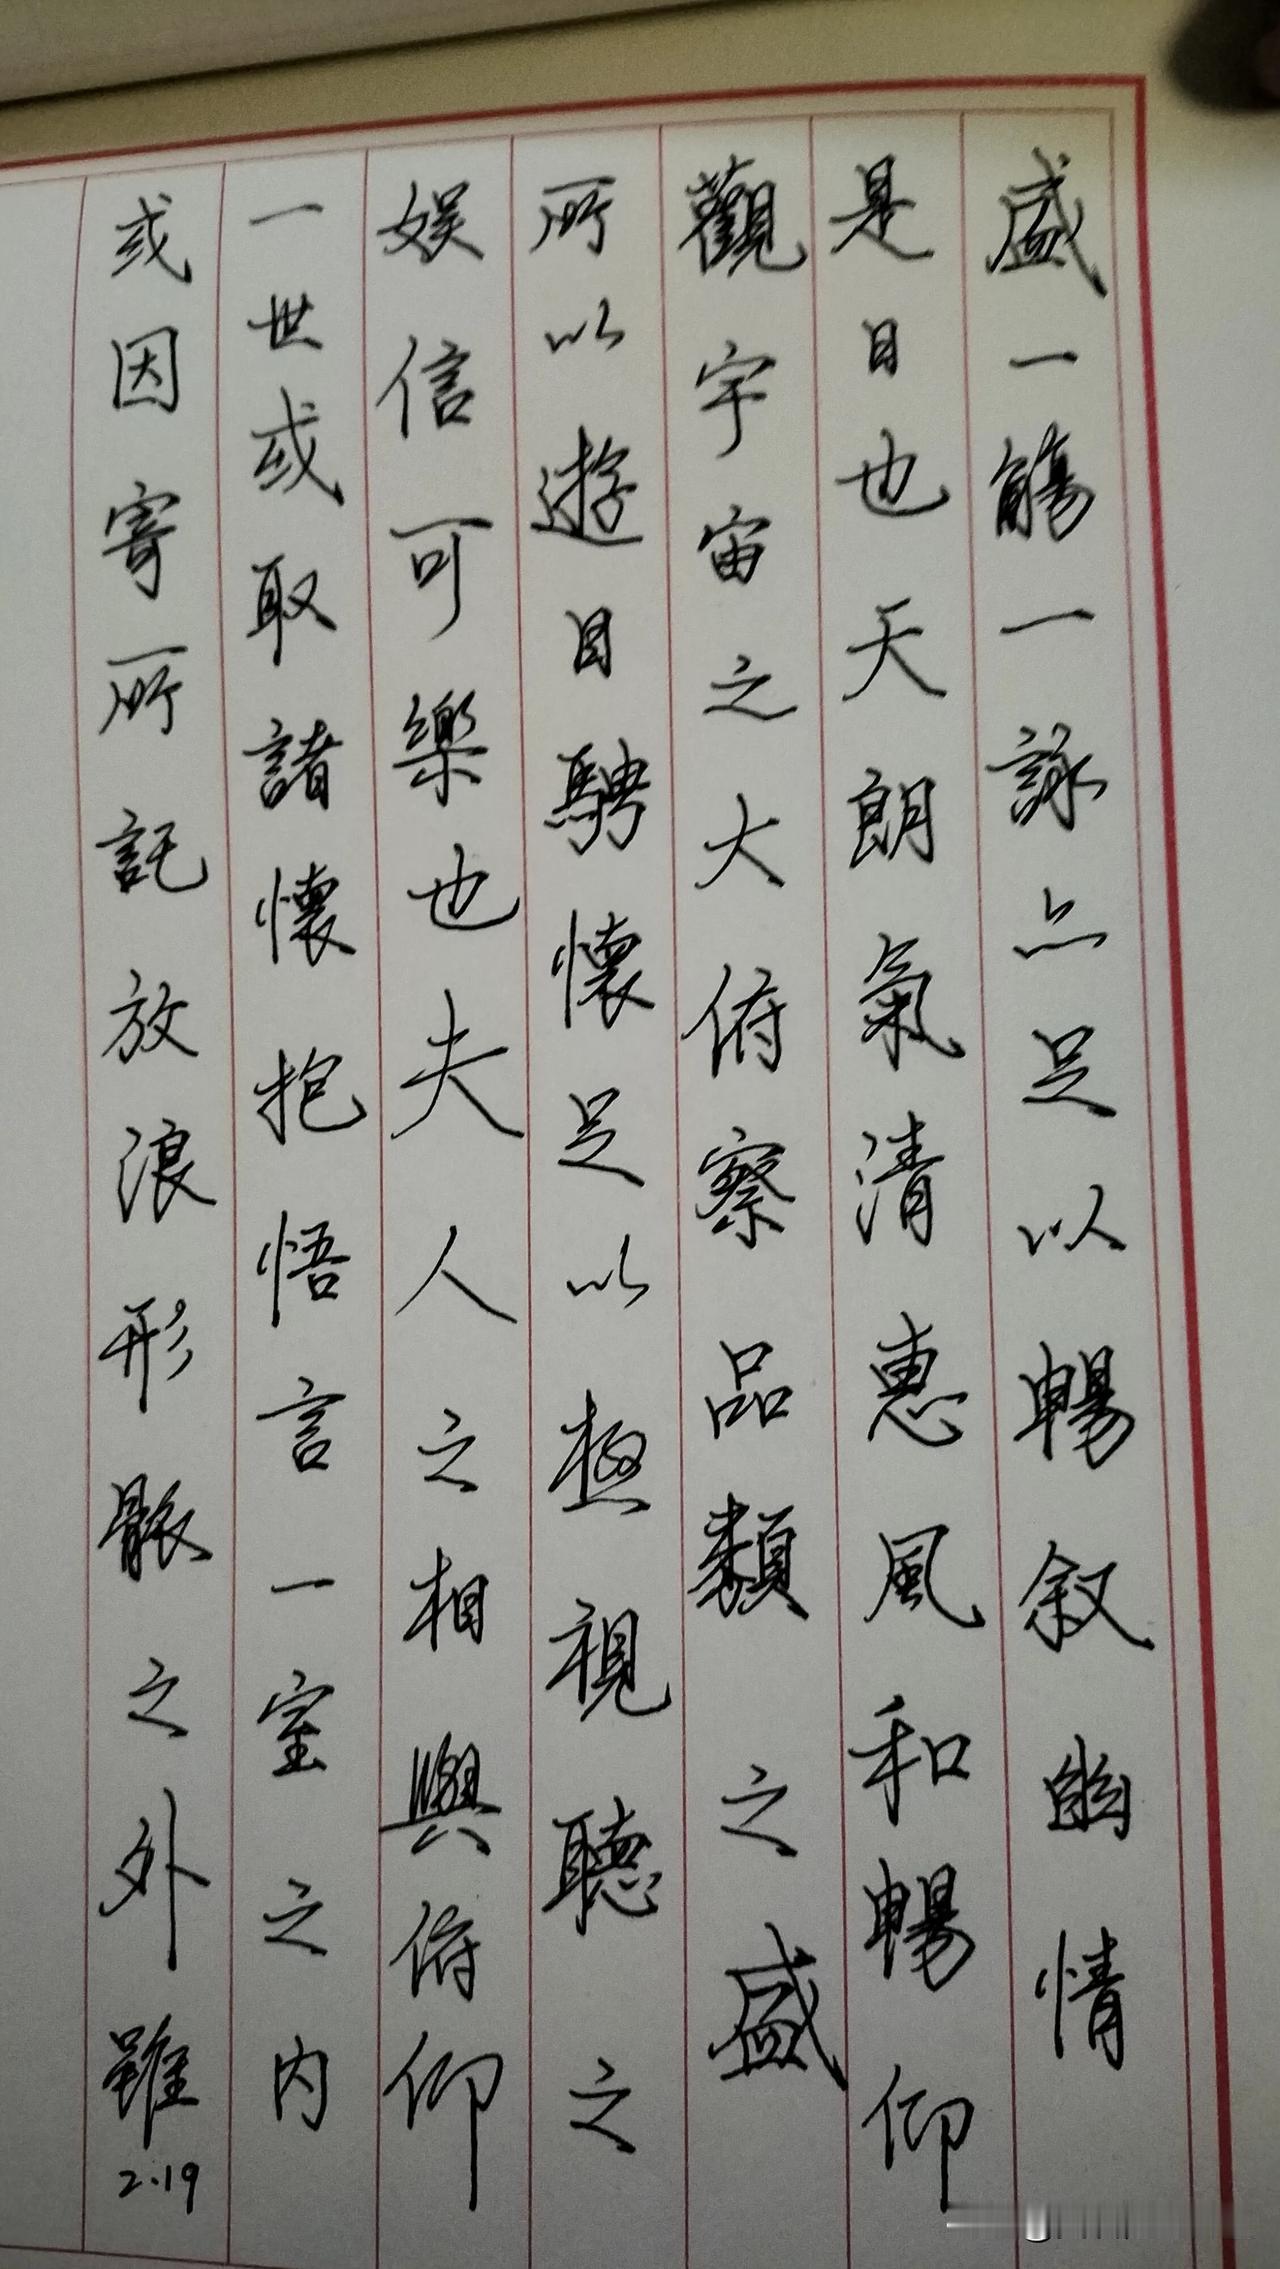 盛一觴一詠亦足以暢叙幽情
是日也天朗氣清惠風和暢仰
觀宇宙之大俯察品類之盛
所以遊目騁懷足以極視聽之
娱信可樂也夫人之相與俯仰
一世或取諸懷抱悟言一室之内
或因寄所託放浪形骸之外雖
2.19